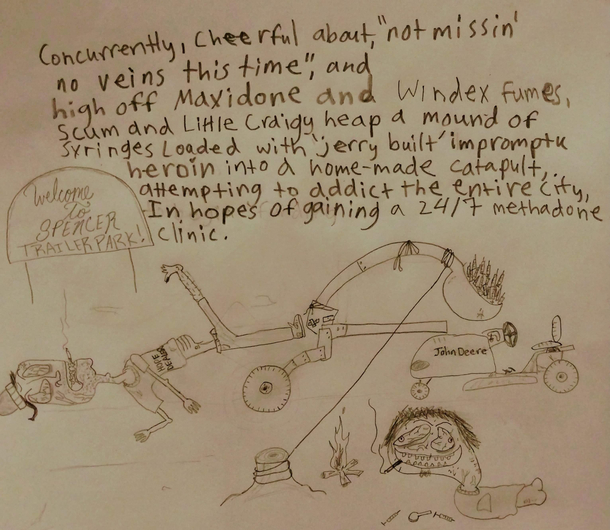 Concurrently, cheerful about, "not missin'
no veins this time", and
high off Maxidone and Windex fumes,
Scum and Little Craigy heap a mound of
syringes loaded with 'jerry built' impromptu
heroin into a home-made catapult,
attempting to addict the entire city,
In hopes of gaining a 24/7 methadone
clinic.
Welcome
to
SPENCER
TRAILER PARK!
HOPE
John Deere